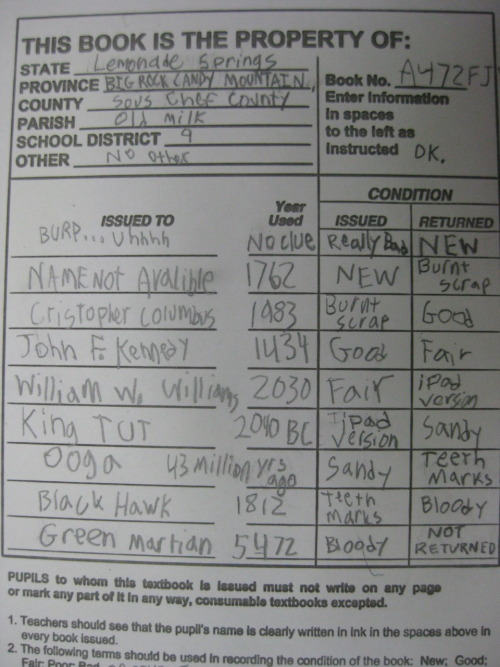 THIS BOOK IS THE PROPERTY OF:
STATE Lemonade Springs
PROVINCE BIG ROCK CANDY MOUNTAIN,
COUNTY Sous Chef County
PARISH Old Milk
SCHOOL DISTRICT 9
OTHER No other
Book No. A472FJ
Enter information
in spaces
to the left as
instructed OK.
CONDITION
ISSUED TO Year Used ISSUED RETURNED
BURP... Uhhhh No clue Really Bad NEW
NAME Not Avalible 1762 NEW Burnt scrap
Cristopher Columbus 1983 Burnt scrap Good
John F. Kennedy 1434 Good Fair
William W. Williams 2030 Fair iPad version
King TUT 2040 BC iPad version Sandy
Ooga 43 Million yrs ago Sandy Teeth Marks
Black Hawk 1812 Teeth marks Bloody
Green Martian 5472 Bloody NOT RETURNED
PUPILS to whom this textbook is issued must not write on any page
or mark any part of it in any way, consumable textbooks excepted.
1. Teachers should see that the pupil's name is clearly written in ink in the spaces above in
every book issued.
2. The following terms should be used in recording the condition of the book: New; Good;
Fair; Poor; Bad.